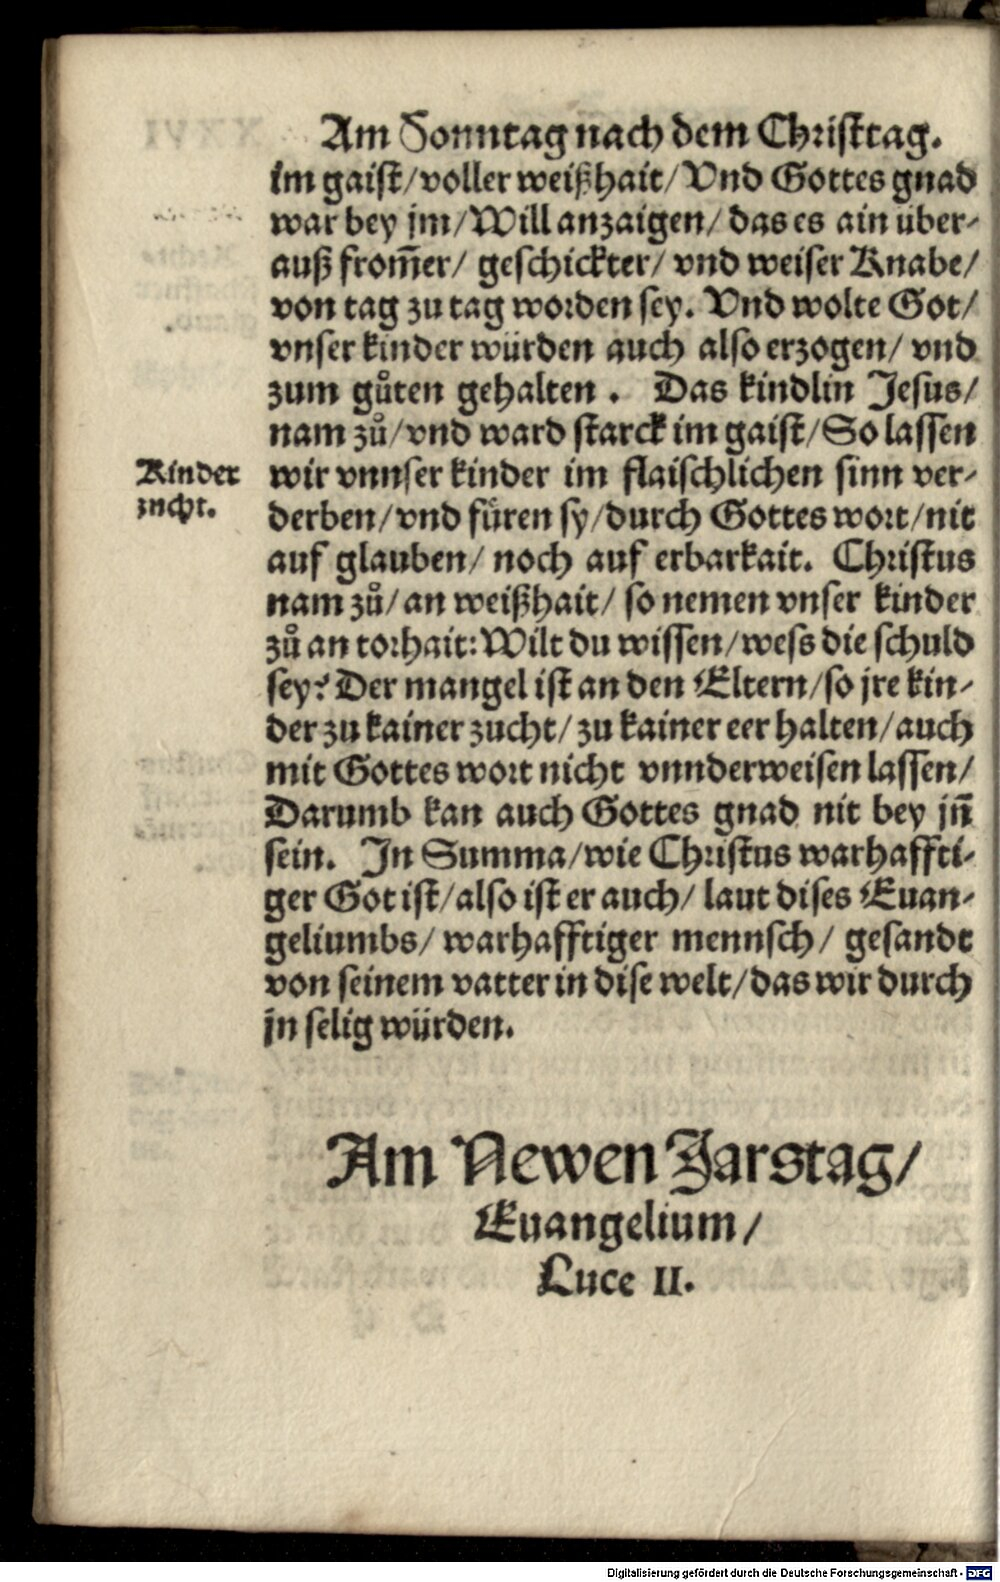 Am Sonntag nach dem Christtag.
im gaist/voller weißhait/Vnd Gottes gnad
war bey jm/Will anzaigen/das es ain über-
auß from̄er/ geschickter/ vnd weiser Knabe/
von tag zu tag worden sey. Vnd wolte Got/
vnser kinder würden auch also erzogen/ vnd
zum gůten gehalten. Das kindlin Jesus/
nam zů/vnd ward starck im gaist/So lassen
Kinder
zucht.
wir vnnser kinder im flaischlichen sinn ver-
derben/vnd füren sy/durch Gottes wort/nit
auf glauben/ noch auf erbarkait. Christus
nam zů/an weißhait/ so nemen vnser kinder
zů an torhait: Wilt du wissen/wess die schuld
sey? Der mangel ist an den Eltern/so jre kin-
der zu kainer zucht/zu kainer eer halten/auch
mit Gottes wort nicht vnnderweisen lassen/
Darumb kan auch Gottes gnad nit bey jn̄
sein. In Summa/wie Christus warhaffti-
ger Got ist/also ist er auch/ laut dises Euan-
geliumbs/ warhafftiger mennsch/ gesandt
von seinem vatter in dise welt/das wir durch
jn selig würden.
Am Newen Jarstag/
Euangelium/
Luce II.
Digitalisierung gefördert durch die Deutsche Forschungsgemeinschaft - DFG